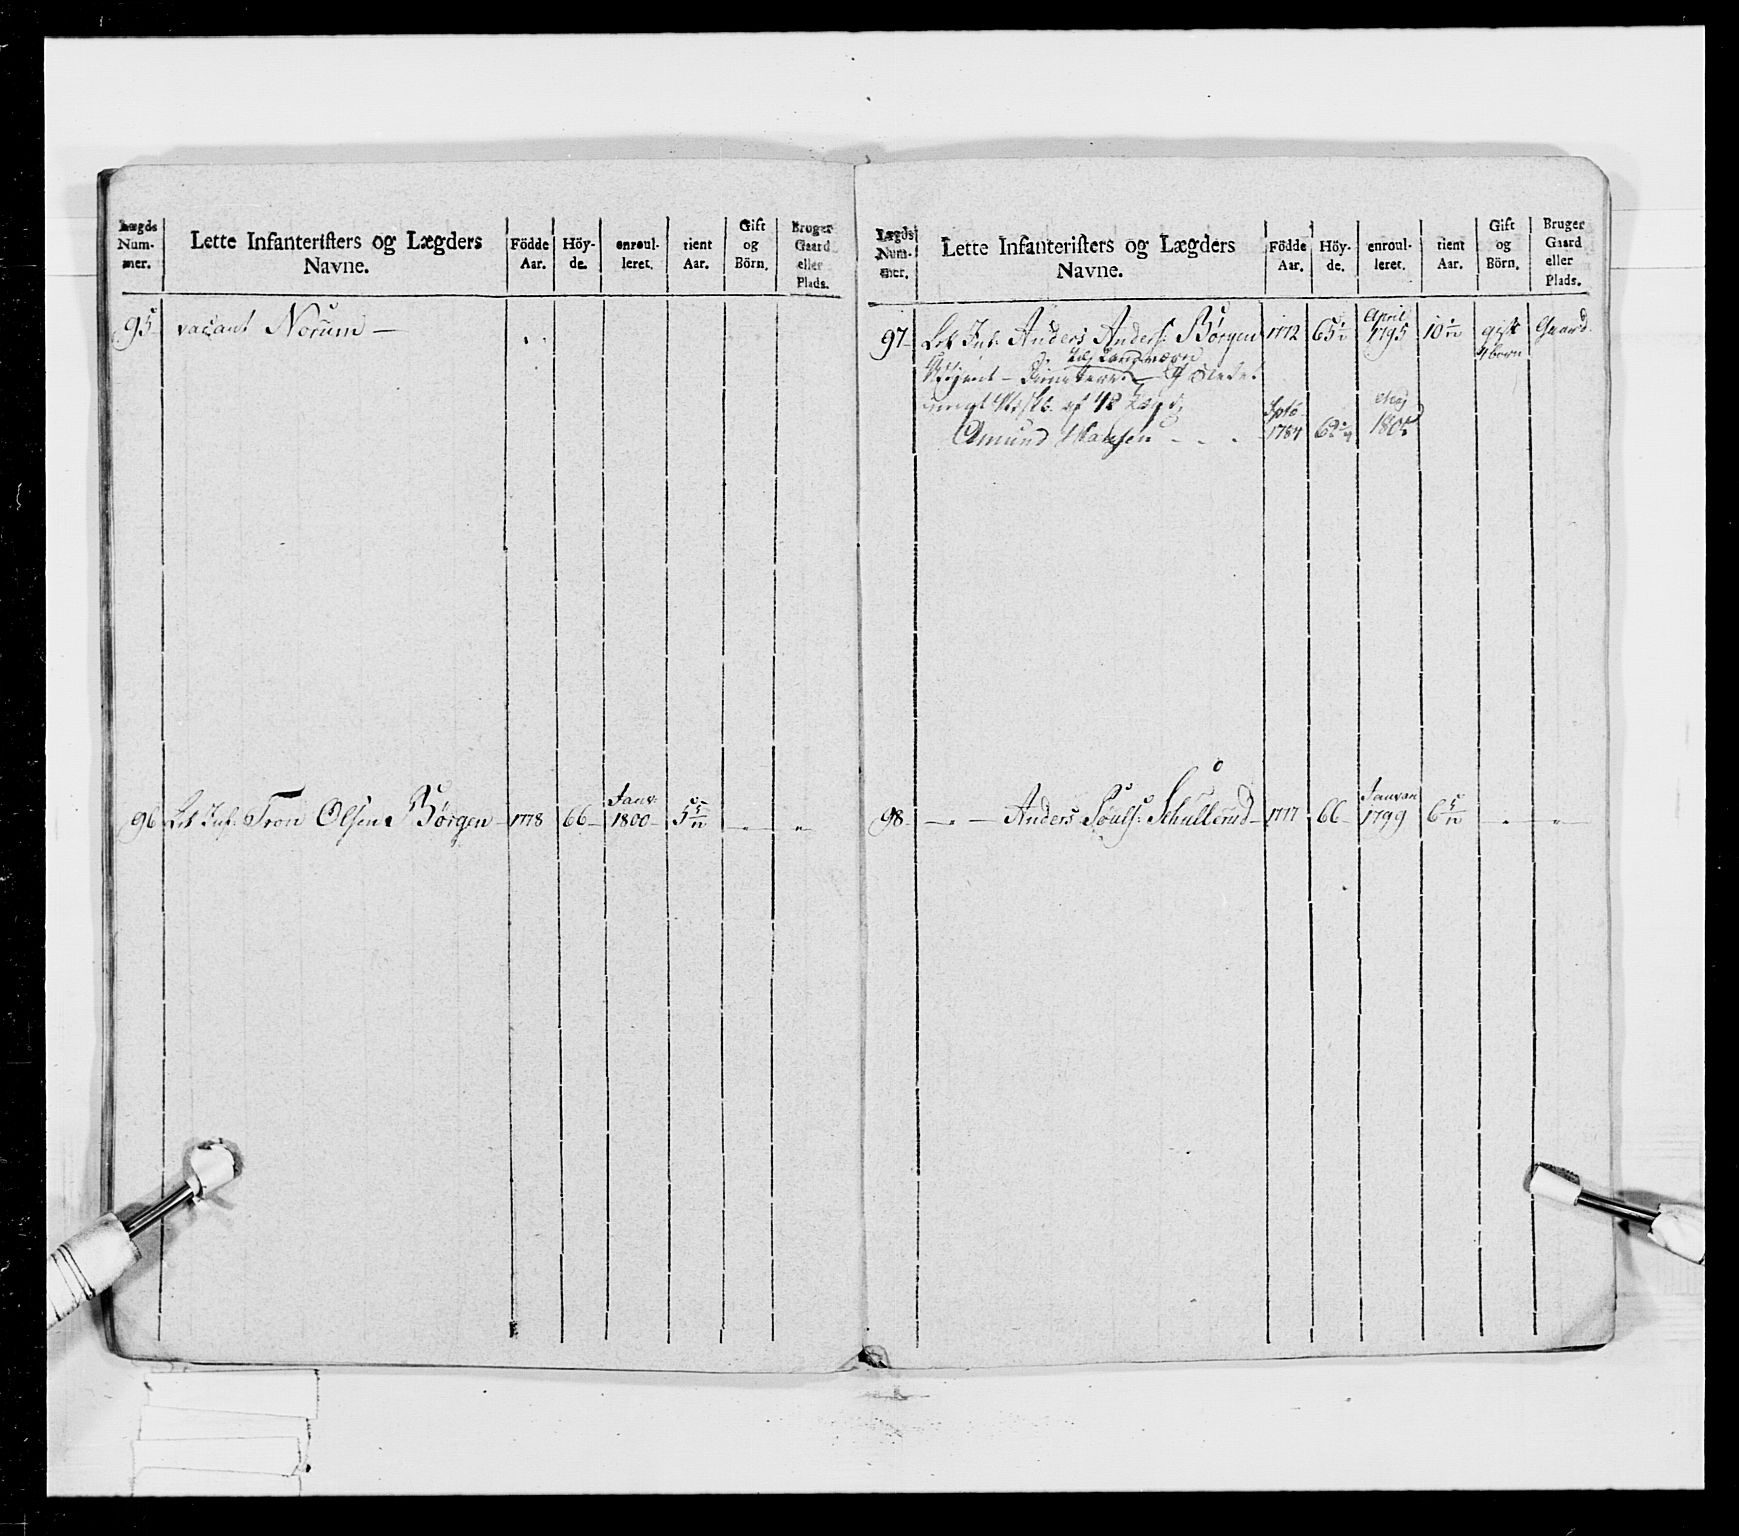 Lægds Num-mer. | Lette Infanterister og Lægders Navne. | Födde Aar. | Höy-de. | enroul-leret. | tient Aar. | Gift og Börn. | Bruger Gaard eller Plads.
95 vacant Norum —
96 Let Inf: Tron Olsen Børgen 1778 66 Janv: 1800 5 5/12 " "
Lægds Num-mer. | Lette Infanterister og Lægders Navne. | Födde Aar. | Höy-de. | enroul-leret. | tient Aar. | Gift og Börn. | Bruger Gaard eller Plads.
97 Let Inf: Anders Anders: Børgen 1772 65 April 1795 10 gift 4 børn Gaard
til Landværn
af 42 Lægd
Amund Hansen 1784 62 Maj
98 — " — Anders Schullerud 1777 66 Januari 1799 6 5/12 " "